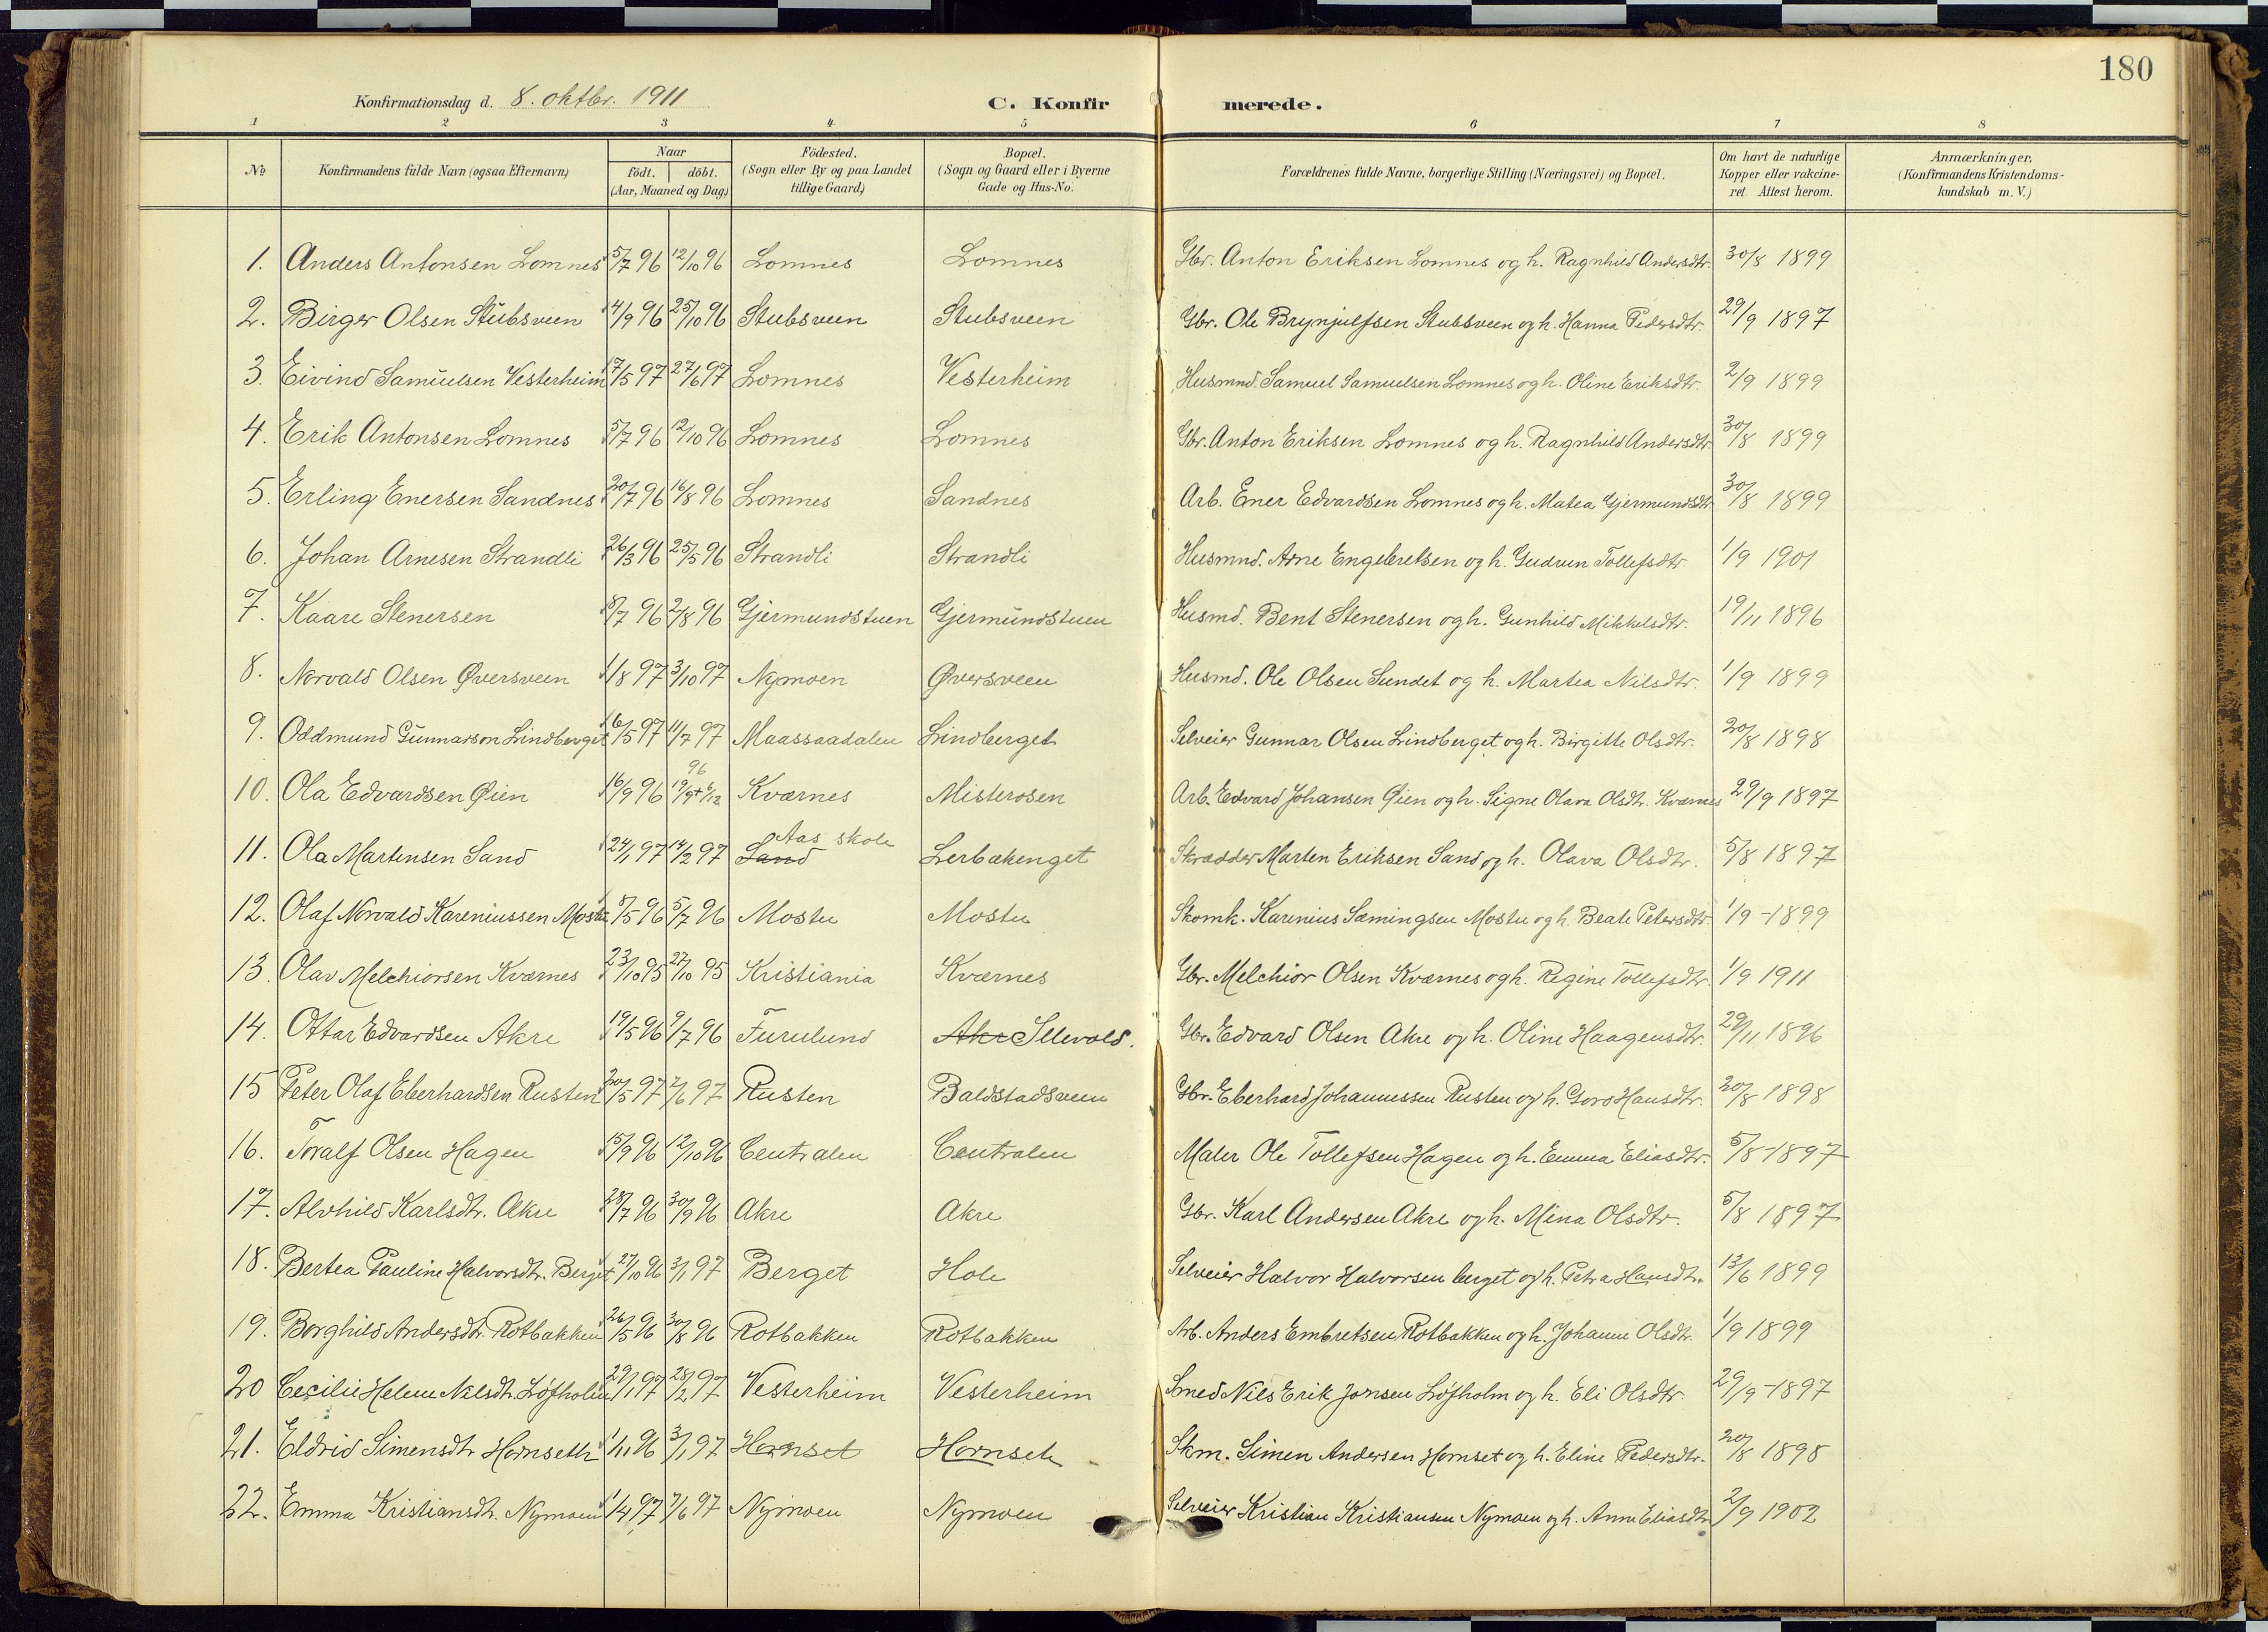 180
Konfirmationsdag d. 8. oktbr. 1911 C. Konfirmerede.
1 2 3 4 5 6 7 8
No Konfirmandens fulde Navn (ogsaa Efternavn) Naar födt. döbt. (Aar, Maaned og Dag) Födested. (Sogn eller By og paa Landet tillige Gaard) Bopæl. (Sogn og Gaard eller i Byerne Gade og Hus-No. Forældrenes fulde Navne, borgerlige Stilling (Næringsvei) og Bopæl. Om havt de naturlige Kopper eller vakcineret. Attest herom. Anmærkninger, (Konfirmandens Kristendomskundskab m. V.)
1. Anders Antonsen Lomnes 5/7 96 12/10 96 Lomnes Lomnes Gbr. Anton Eriksen Lomnes og h. Ragnhild Andersdtr. 30/8 1899
2. Birger Olsen Stubsveen 4/9 96 25/10 96 Stubsveen Stubsveen Gbr. Ole Brynjulfsen Stubsveen og h. Hanna Pedersdtr. 29/9 1897
3. Eivind Samuelsen Vesterheim 17/5 97 27/6 97 Lomnes Vesterheim Husmnd. Samuel Samuelsen Lomnes og h. Oline Eriksdtr. 2/9 1899
4. Erik Antonsen Lomnes 5/7 96 12/10 96 Lomnes Lomnes Gbr. Anton Eriksen Lomnes og h. Ragnhild Andersdtr. 30/8 1899
5. Erling Enersen Sandnes 20/7 96 16/8 96 Lomnes Sandnes Arb. Ener Edvardsen Lomnes og h. Matea Gjermundsdtr. 30/8 1899
6. Johan Arnesen Strandli 26/3 96 25/5 96 Strandli Strandli Husmnd. Arne Engebretsen og h. Gudrun Tollefsdtr. 1/9 1901
7. Kaare Stenersen 8/7 96 2/8 96 Gjermundstuen Gjermundstuen Husmd. Bent Stenersen og h. Gunhild Mikkelsdtr. 19/11 1896
8. Norvald Olsen Øversveen 1/8 97 3/10 97 Nymoen Øversveen Husmd. Ole Olsen Sundet og h. Martea Nilsdtr. 1/9 1899
9. Oddmund Gunnarson Lindberget 16/5 97 11/7 97 Maassaadalen Lindberget Selveier Gunnar Olsen Lindberget og h. Birgitte Olsdtr. 20/8 1898
96
10. Ola Edvardsen Øien 16/9 96 19/9 + 6/12 Kværnes Misterosen Arb. Edvard Johansen Øien og h. Signe Olava Olsdtr. Kværnes 29/9 1897
Aas skole
11. Ola Martensen Sand 24/1 97 14/2 97 Sand Lerbækenget Skrædder Marten Eriksen Sand og h. Olava Olsdtr. 5/8 1897
12. Olaf Norvald Kareniussen Mostu 8/5 96 5/7 96 Mostu Mostu Skomk. Karenius Sæmingsen Mostu og h. Beate Petersdtr. 1/9 - 1899
13. Olav Melchiorsen Kværnes 23/10 95 27/10 95 Kristiania Kværnes Gbr. Melchior Olsen Kværnes og h. Regine Tollefsdtr. 1/9 1911
14. Ottar Edvardsen Akre 19/5 96 9/7 96 Furulund Akre Sllevold. Gbr. Edvard Olsen Akre og h. Oline Haagensdtr. 29/11 1896
15 Peter Olaf Eberhardsen Rusten 20/5 97 7/6 97 Rusten Baldstadsveen Gbr. Eberhard Johannessen Rusten og h. Goro Hansdtr. 20/8 1898
16. Toralf Olsen Hagen 15/9 96 12/10 96 Centralen Centralen Maler Ole Tollefsen Hagen og h. Emma Eliasdtr. 5/8 - 1897
17. Alvhild Karlsdtr. Akre 28/7 96 30/9 96 Akre Akre Gbr. Karl Andersen Akre og h. Mina Olsdtr. 5/8 1897
18. Bertea Pauline Halvorsdtr. Berget 27/10 96 3/1 97 Berget Hole Selveier Halvor Halvorsen berget og h. Petra Hansdtr. 13/6 1899
19. Borghild Andersdtr. Rotbakken 26/5 96 30/8 96 Rotbakken Rotbakken Arb. Anders Embretsen Rotbakken og h. Johanne Olsdtr. 1/9 1899
20 Cecilie Helene Nilsdtr. Löfholm 29/1 97 28/2 97 Vesterheim Vesterheim Smed Nils Erik Jonsen Löfholm og h. Eli Olsdtr. 29/9 - 1897
21. Eldrid Simensdtr Hornseth 1/11 96 3/1 97 Hornset Hornset Skm. Simen Andersen Hornset og h. Eline Pedersdtr. 20/8 1898
22. Emma Kristiansdtr. Nymoen 1/4 97 7/6 97 Nymoen Nymoen Selveier Kristian Kristiansen Nymoen og h. Anne Eliasdtr 2/9 1902